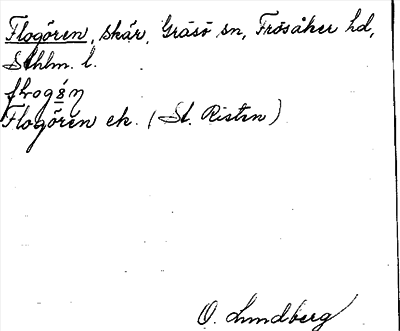 Flogören, skär, Gräsö sn, Frösåker hd,
Sthlm. l.
Flogören ek. (St. Risten)
O. Lundberg